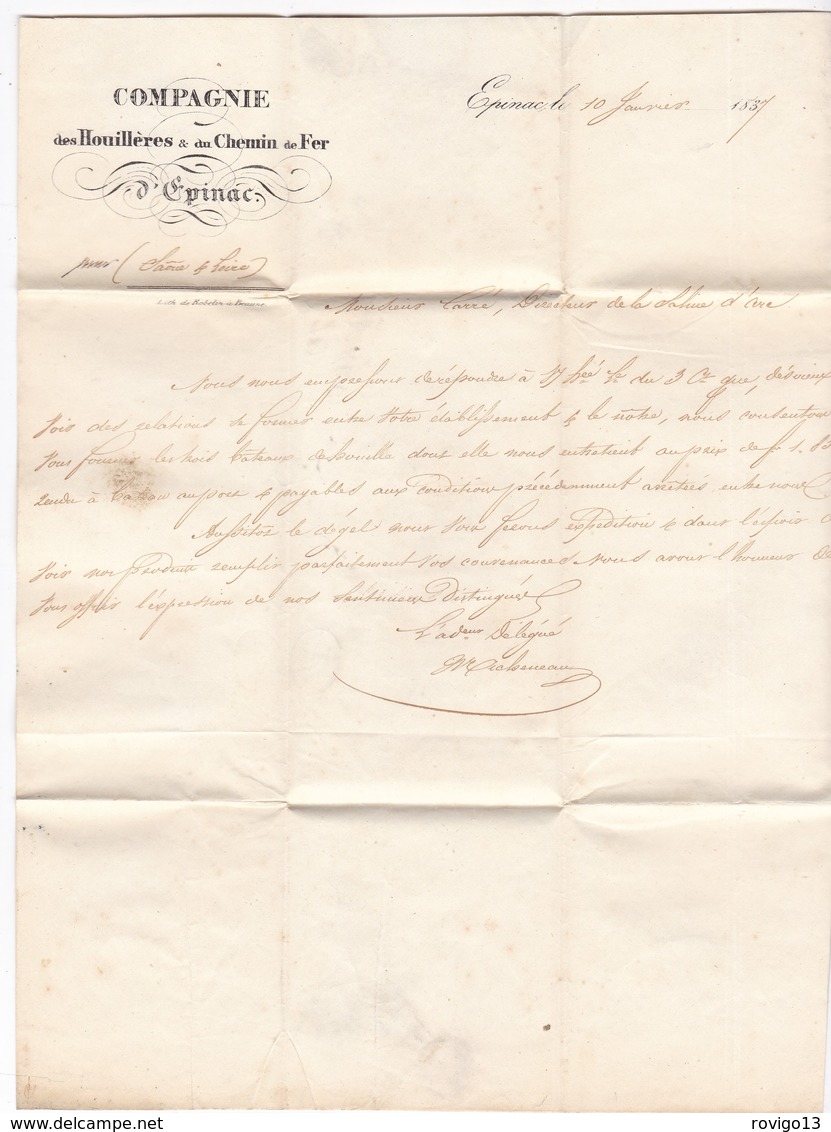 COMPAGNIE
des Houillères & du Chemin de Fer
d'Epinac.
Epinac, le 10 Janvier 1837
(Saône & Loire)
Lith. de Robelin à Beaune
Monsieur Carré, Directeur de la Saline d'Arc
Nous nous empressons de répondre à Vre du 3 Ct que, désireux
Voir des relations se former entre Votre établissement & le nôtre, nous consentons
Vous fournir les trois bateaux de houille dont elle nous entretient au prix de fr 1.
rendu à bateau au port & payables aux conditions précédemment arrêtées entre nous
Aussitôt le dégel nous Vous ferons expédition & dans l'espoir
Voir nos produits remplir parfaitement Vos convenances Nous avons l'honneur de
Vous offrir l'expression de nos Sentiments Distingués
L'adeur Délégué
rovigo13